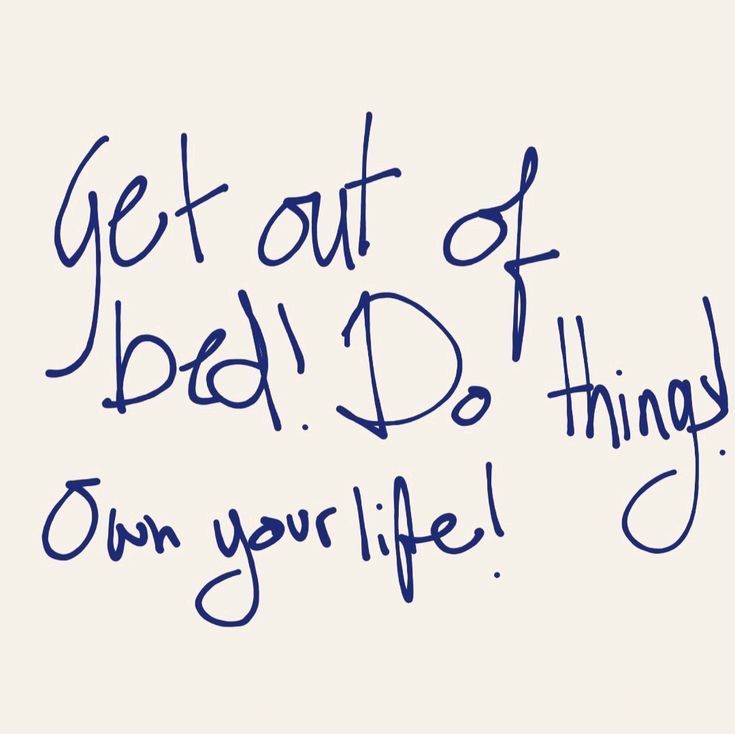 Get out of
bed! Do things!
Own your life!